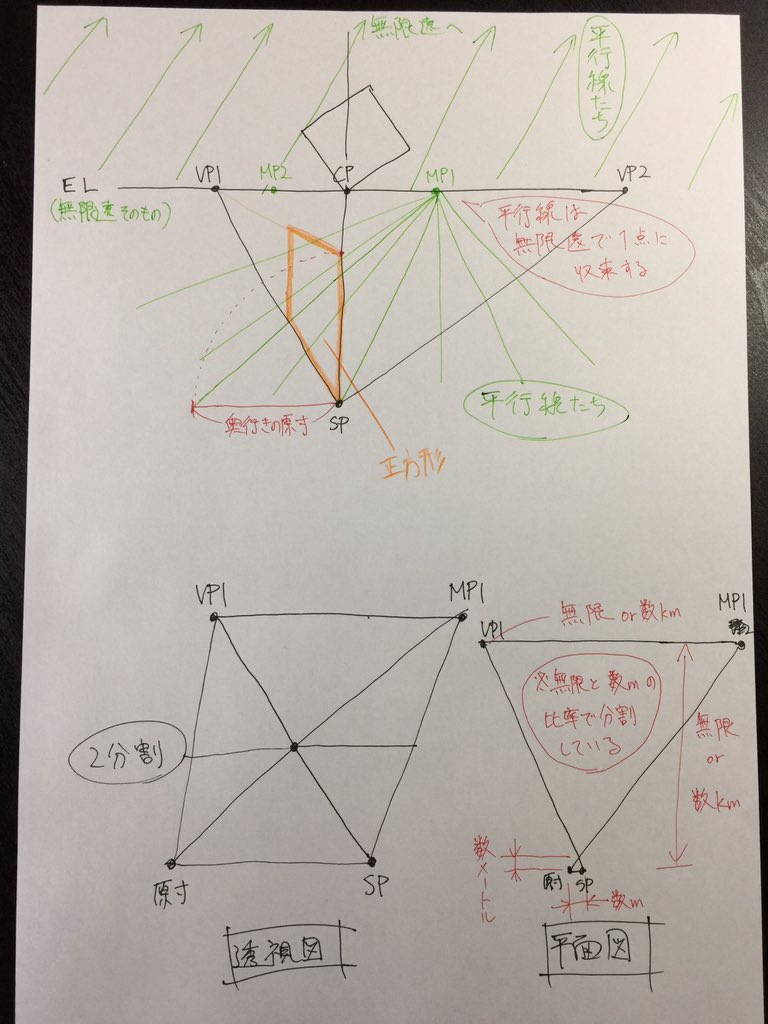 無限遠へ
平行線たち
EL
(無限遠そのもの)
VP1
MP2
CP
MP1
VP2
平行線は
無限遠で1点に
収束する
平行線たち
奥行きの原寸
SP
正方形
VP1
MP1
2分割
原寸
SP
透視図
VP1
無限or数km
MP1
※無限と数mの
比率で分割
している
無限
or
数km
数メートル
原寸
SP
数m
平面図